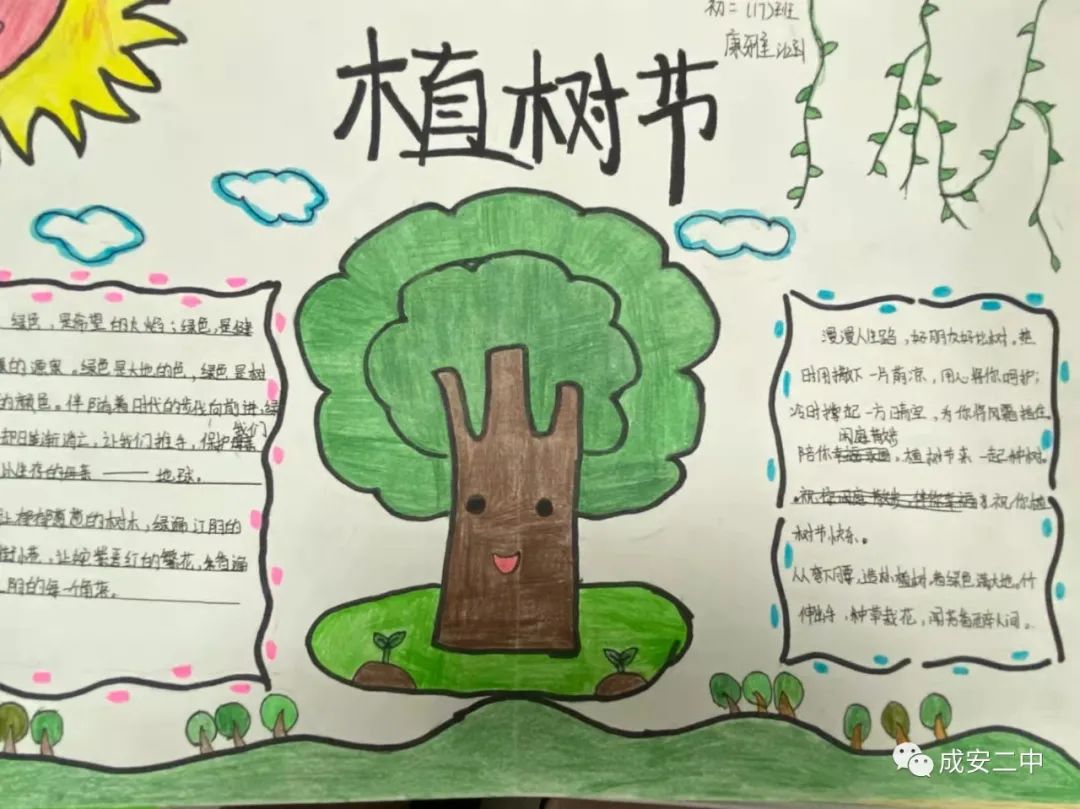 初二(17)班
植树节
绿色,是希望的火焰;绿色,是健
的源泉。绿色是大地的色,绿色是树
的颜色。伴随着时代的步伐向前进,绿
却日渐消亡,让我们携手,保护
我们
以生存的母亲——地球。
让郁郁葱葱的树木,绿遍订阳的
街小巷,让姹紫嫣红的繁花,
阳的每一个角落。
漫漫人生路,好朋友好比树。热
时用撒下一片荫凉,用心将你呵护;
冷时撑起一方晴空,为你将风霜挡住。
闲庭散步
陪你幸福,植树节来一起种树。
祝你闲庭散步 伴你幸福 祝你植
树节快乐。
人人弯下腰,造林植树,看绿色满大地。个个
伸出手,种草栽花,闻芳香醉人间。
成安二中